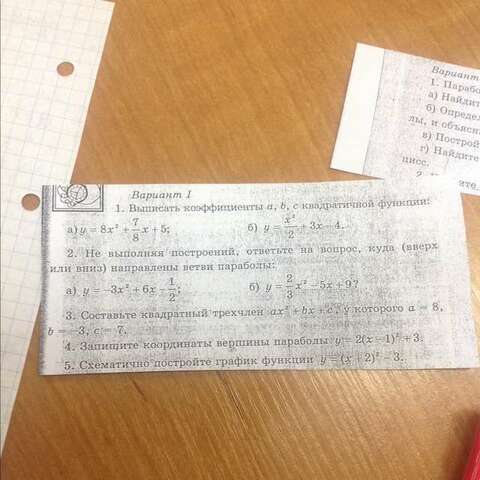 Вариант 1
1. Выписать коэффициенты a, b, c квадратичной функции:
а) y = 8x² + 7/8 x + 5; б) y = x²/2 + 3x − 4.
2. Не выполняя построений, ответьте на вопрос, куда (вверх
или вниз) направлены ветви параболы:
а) y = −3x² + 6x − 1/2; б) y = 2/3 x² − 5x + 9?
3. Составьте квадратный трехчлен ax² + bx + c, у которого a = 8,
b = −3, c = 7.
4. Запишите координаты вершины параболы y = 2(x − 1)² + 3.
5. Схематично постройте график функции y = (x + 2)² − 3.
Вариант
1. Парабо
а) Найдит
б) Опредег
лы, и объясн
в) Построй
г) Найдите
цисс.